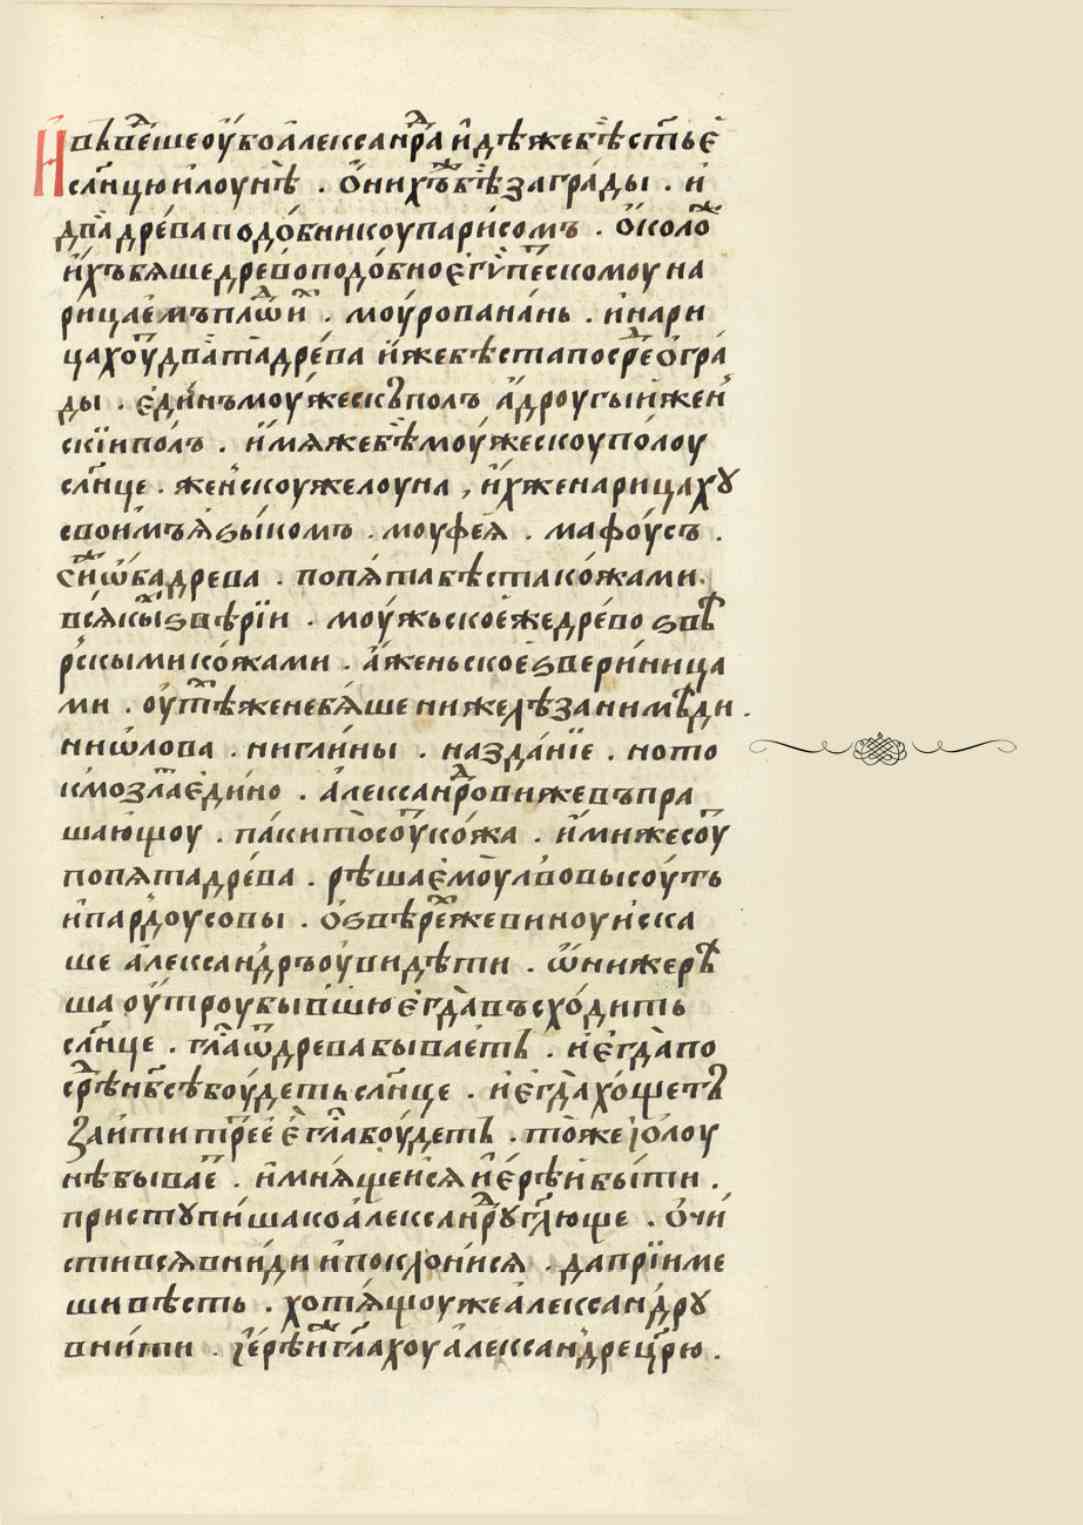 И въведеше оубо александра идѣже бѣ стъе
слнцю илоунѣ . ониⷯ же бѣ заграды . и
два древа подобни коупарисомъ . около
ихъ бяше древо подобно егупетскомоу на
рицаемъ плод н҃и . моуропананъ . инари
цахоу два та древа иже бѣста посредѣ огра
ды . единъ моужескъ полъ адроугыи жен
скїи полъ . имяже бѣ моужескоу полоу
слнце . женскоу же лоуна , ихже нарицахꙋ
своимъ языкомъ . моуфея . мафоусъ .
сіи ѡба древа . попята бѣста кожами .
всякыⷯ ѕвѣрїи . моужьское же древо ѕвѣ
рскыми кожами . аженьское ѕверинница
ми . оу тѣⷯ же не бяше ни желѣза ни мѣди
ни ѡлова . ни глины . на зданїе . ното
кмо зла едино . александрови же въпра
шающоу . пакы то соу кожа . имиже соу
попята древа . рѣша емоу львовы соуть
и пардоусовы . о ѕвѣреⷯ же вин оу иска
ше александръ оувидѣти . ѡниже рѣ
ша оутроу бывшю егда въсходить
слнце . гла ѿ древа бываеть . и егда по
средѣ нбсѣ боудеть слнце . и егда хощетъ
заити третее е гла боудетъ . тоже и о лоу
нѣ бывает . имнящеися иерѣи быти .
приступиша ко александрꙋ глюще . очи
стився вниди и поклонися . да прїиме
ши вѣсть . хотящоуже александрꙋ
внити . іерѣи же глахоу александре црю .